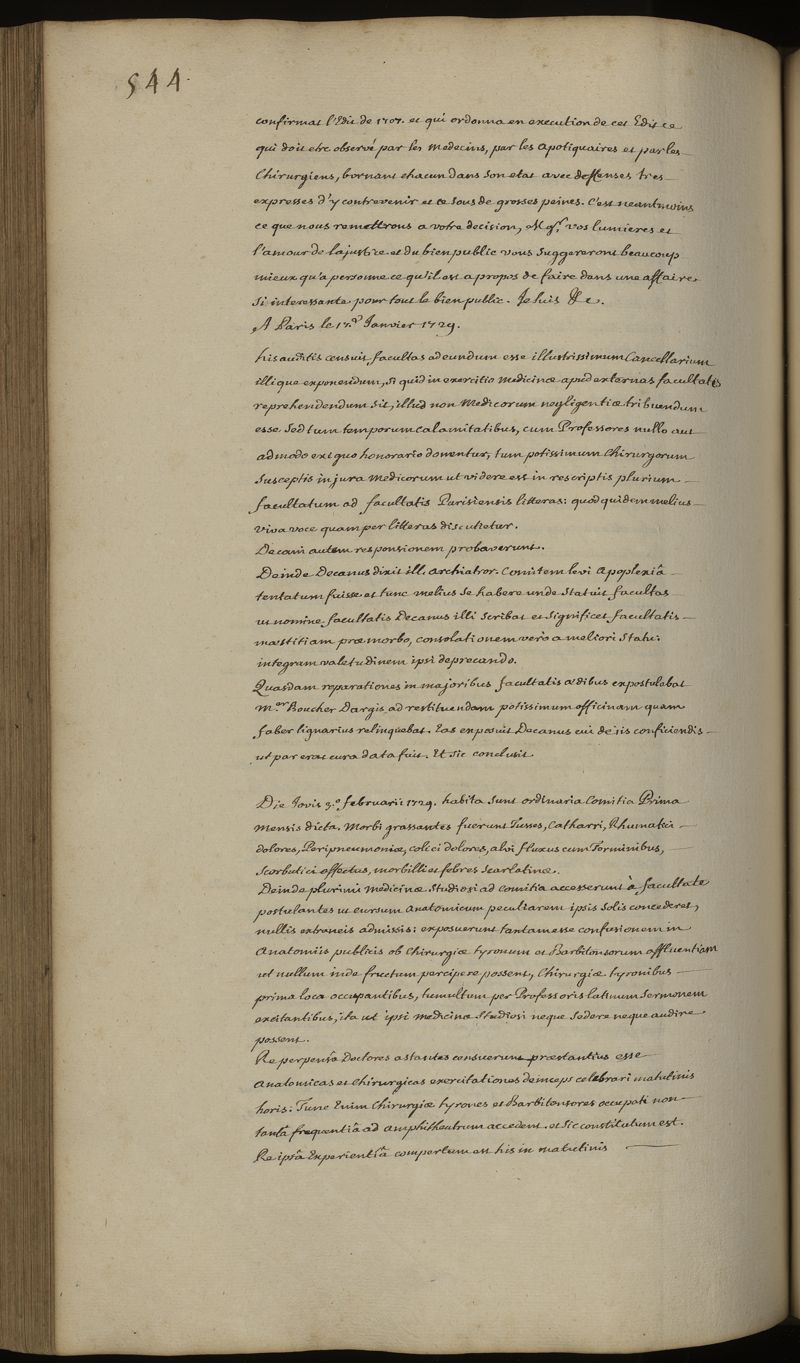 544
confirmat l'Edit de 1707. et qui ordonna en execution de cet Edit ce
qui doit etre observé par les Medecins, par les Apotiquaires et par les
Chirurgiens, bornant chacun dans son etat avec deffenses tres
expresses d'y contrevenir et ce sous de grosses peines. C'est neantmoins
ce que nous remettrons a votre decision, Mgr. vos lumieres et
l'amour de la justice et du bien public vous suggereront beaucoup
mieux qu'a personne ce qu'il est a propos de faire dans une affaire
si interessante pour tout le bien public. Je suis &c.
A Paris le 17.e Janvier 1729.
his auditis censuit facultas adeundum esse illustrissimum Cancellarium
illique exponendum, si quid in exercitio Medicinæ apud externas facultates
reprehendendum sit, illud non Medicorum negligentiæ tribuendum
esse sed tum temporum calamitatibus, cum Professores nullo aut
admodo exiguo honorario donentur, tum potissimum Chirurgorum
susceptis in jura Medicorum ut videre est in rescriptis plurium
facultatum ad facultatis Parisiensis litteras: quod quidem melius
viva voce quam per litteras discutietur.
Decani autem responsionem probaverunt.
Deinde Decanus dixit ill. Archiatror. Comitem levi Apoplexiâ
tentatum fuisse et tunc melius se habere unde statuit facultas
ut nomine facultatis Decanus illi scribat et significet facultatis
mæstitiam præ morbo, consolationem vero a meliori statu:
integram valetudinem ipsi deprecando.
Quasdam reparationes in majoribus facultatis ædibus expostulabat
M.er Boucher Dargis ad restituendam potissimum officinam quam
faber lignarius relinquebat. Eas exposuit Decanus cui de iis conficiendis
ut par erat cura data fuit. Et sic conclusit
Die Jovis 3.a februarii 1729. habita sunt ordinaria Comitia Prima
mensis dicta. Morbi grassantes fuerunt Tusses, Catharri, Rhumatici
dolores, Peripneumoniæ, colici dolores, alvi fluxus cum Torminibus,
scorbutici affectus, morbilli et febres scarlatinæ.
Deinde plurimi Medicinæ studiosi ad Comitia accesserunt à facultate
postulantes ut cursum Anatomicum peculiarem ipsis solis concederet,
nullis extraneis admissis: exposuerunt tantam esse confusionem in
Anatomiis publicis ob Chirurgiæ tyronum et Barbitonsorum affluentiam
ut nullum inde fructum percipere possent, Chirurgiæ tyronibus
prima loca occupantibus, tumultum per Professoris latinum sermonem
excitantibus, ita ut ipsi Medicinæ studiosi neque sedere neque audire
possent.
Re perpensâ Doctores astantes censuerunt præstantius esse
Anatomicas et Chirurgicas exercitationes deinceps celebrari matutinis
horis: Tunc Enim Chirurgiæ tyrones et Barbitonsores occupati non
tantâ frequentiâ ad amphitheatrum accedent. et sic constitutum est.
Re ipsâ Experientiâ compertum est his in matutinis